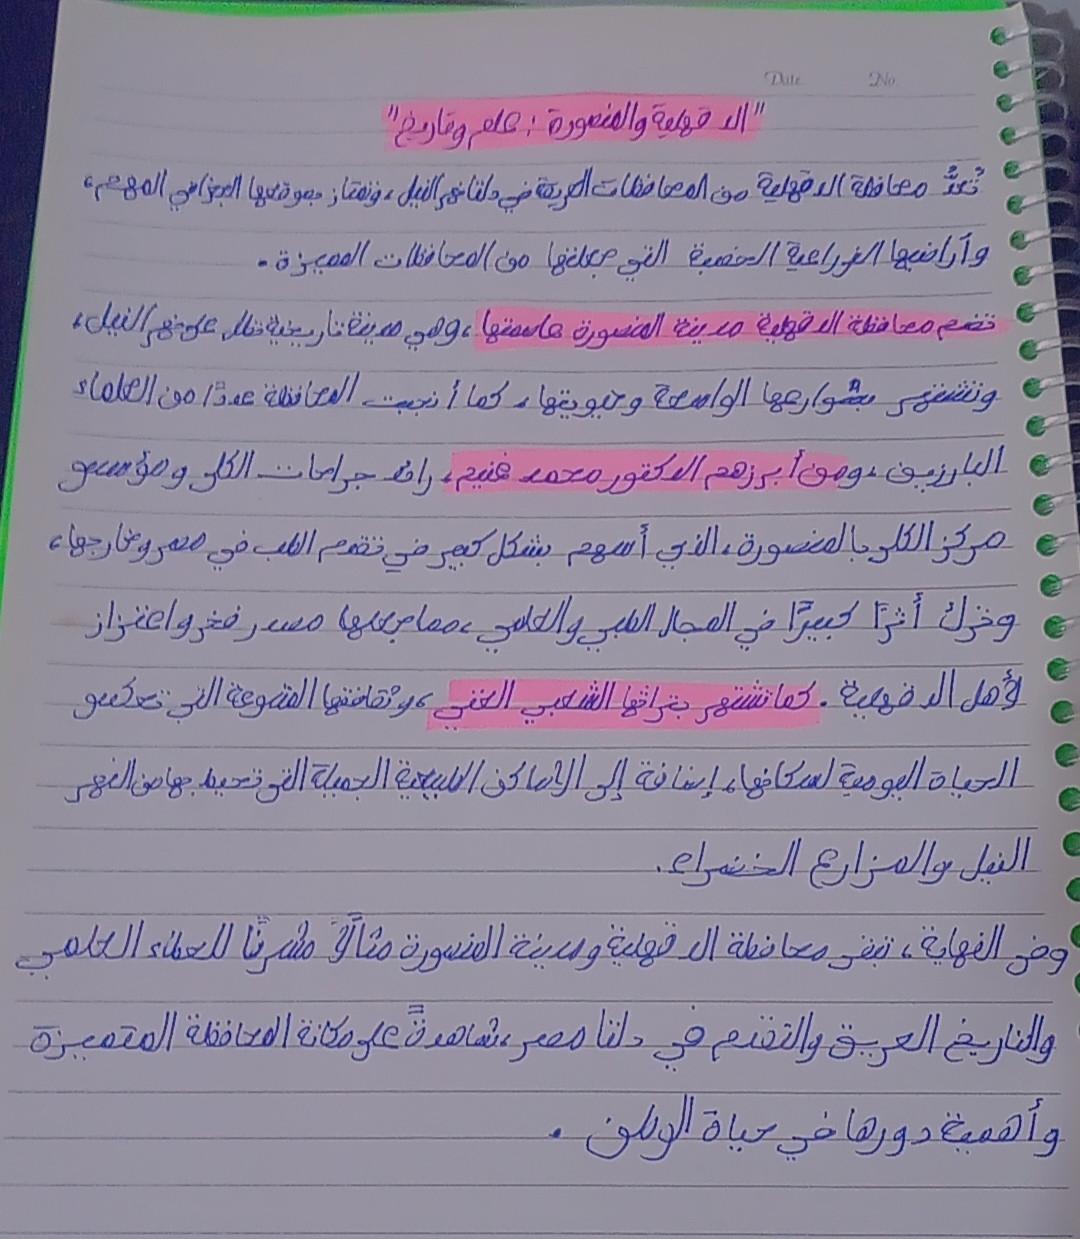 Date No.
"الدقهلية والمنصورة: علم وتاريخ"
تُعدُّ محافظة الدقهلية من المحافظات العريقة في دلتا نهر النيل، وتمتاز بموقعها الجغرافي المهم،
وأراضيها الزراعية الخصبة التي جعلتها من المحافظات المميزة.
تضم محافظة الدقهلية مدينة المنصورة عاصمتها، وهي مدينة تاريخية تطل على نهر النيل،
وتشتهر بشوارعها الواسعة وحيويتها، كما أنجبت المحافظة عددًا من العلماء
البارزين، ومن أبرزهم الدكتور محمد غنيم، رائد جراحات الكلى ومؤسس
مركز الكلى بالمنصورة، الذي أسهم بشكل كبير في تقدم الطب في مصر وخارجها،
وترك أثرًا كبيرًا في المجال الطبي والعلمي، مما جعلها مصدر فخر واعتزاز
لأهل الدقهلية. كما تشتهر بتراثها الشعبي الغني، وثقافتها المتنوعة التي تعكس
الحياة اليومية لسكانها، إضافة إلى الأماكن الطبيعية الجميلة التي تحيط بها من النهر
النيل والمزارع الخضراء.
وفي النهاية، تبقى محافظة الدقهلية ومدينة المنصورة مثالًا مشرفًا للعطاء العلمي
والتاريخ العريق والتقدم في دلتا مصر، شاهدةً على مكانة المحافظة المتميزة
وأهمية دورها في حياة الوطن.